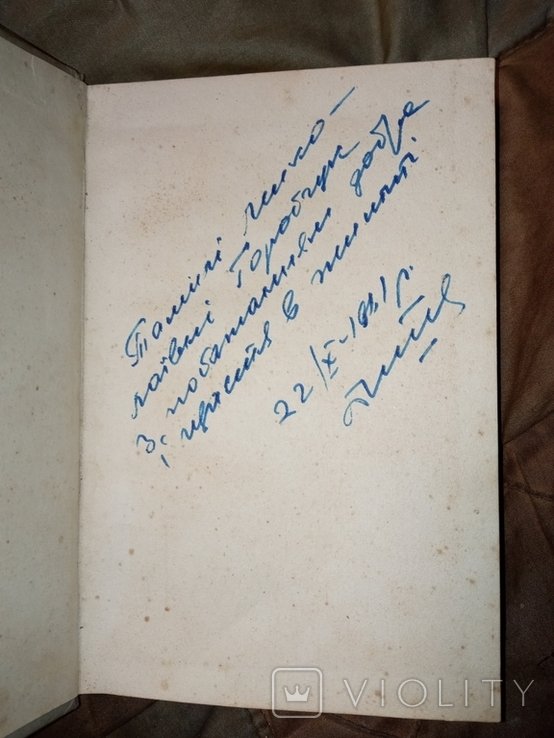 Тамілі Мико-
лаївні Горобчук
З побажанням добра
і щастя в житті
22/X-1981 р.
VIOLITY